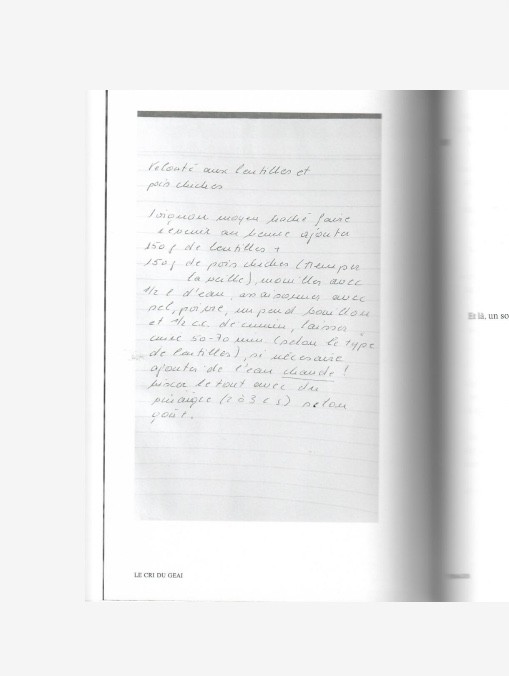 Velouté aux lentilles et
pois chiches
1 oignon moyen haché faire
revenir au beurre ajouter
150 g de lentilles +
150 g de pois chiches (tremper
la veille), mouiller avec
1/2 l d'eau, assaisonner avec
sel, poivre, un peu d bouillon
et 1/2 cc de cumin, laisser
cuire 50-70 min (selon le type
de lentilles), si nécessaire
ajouter de l'eau chaude !
mixer le tout avec du
vinaigre (2 à 3 c s) selon
goût.
LE CRI DU GEAI
Et là, un so